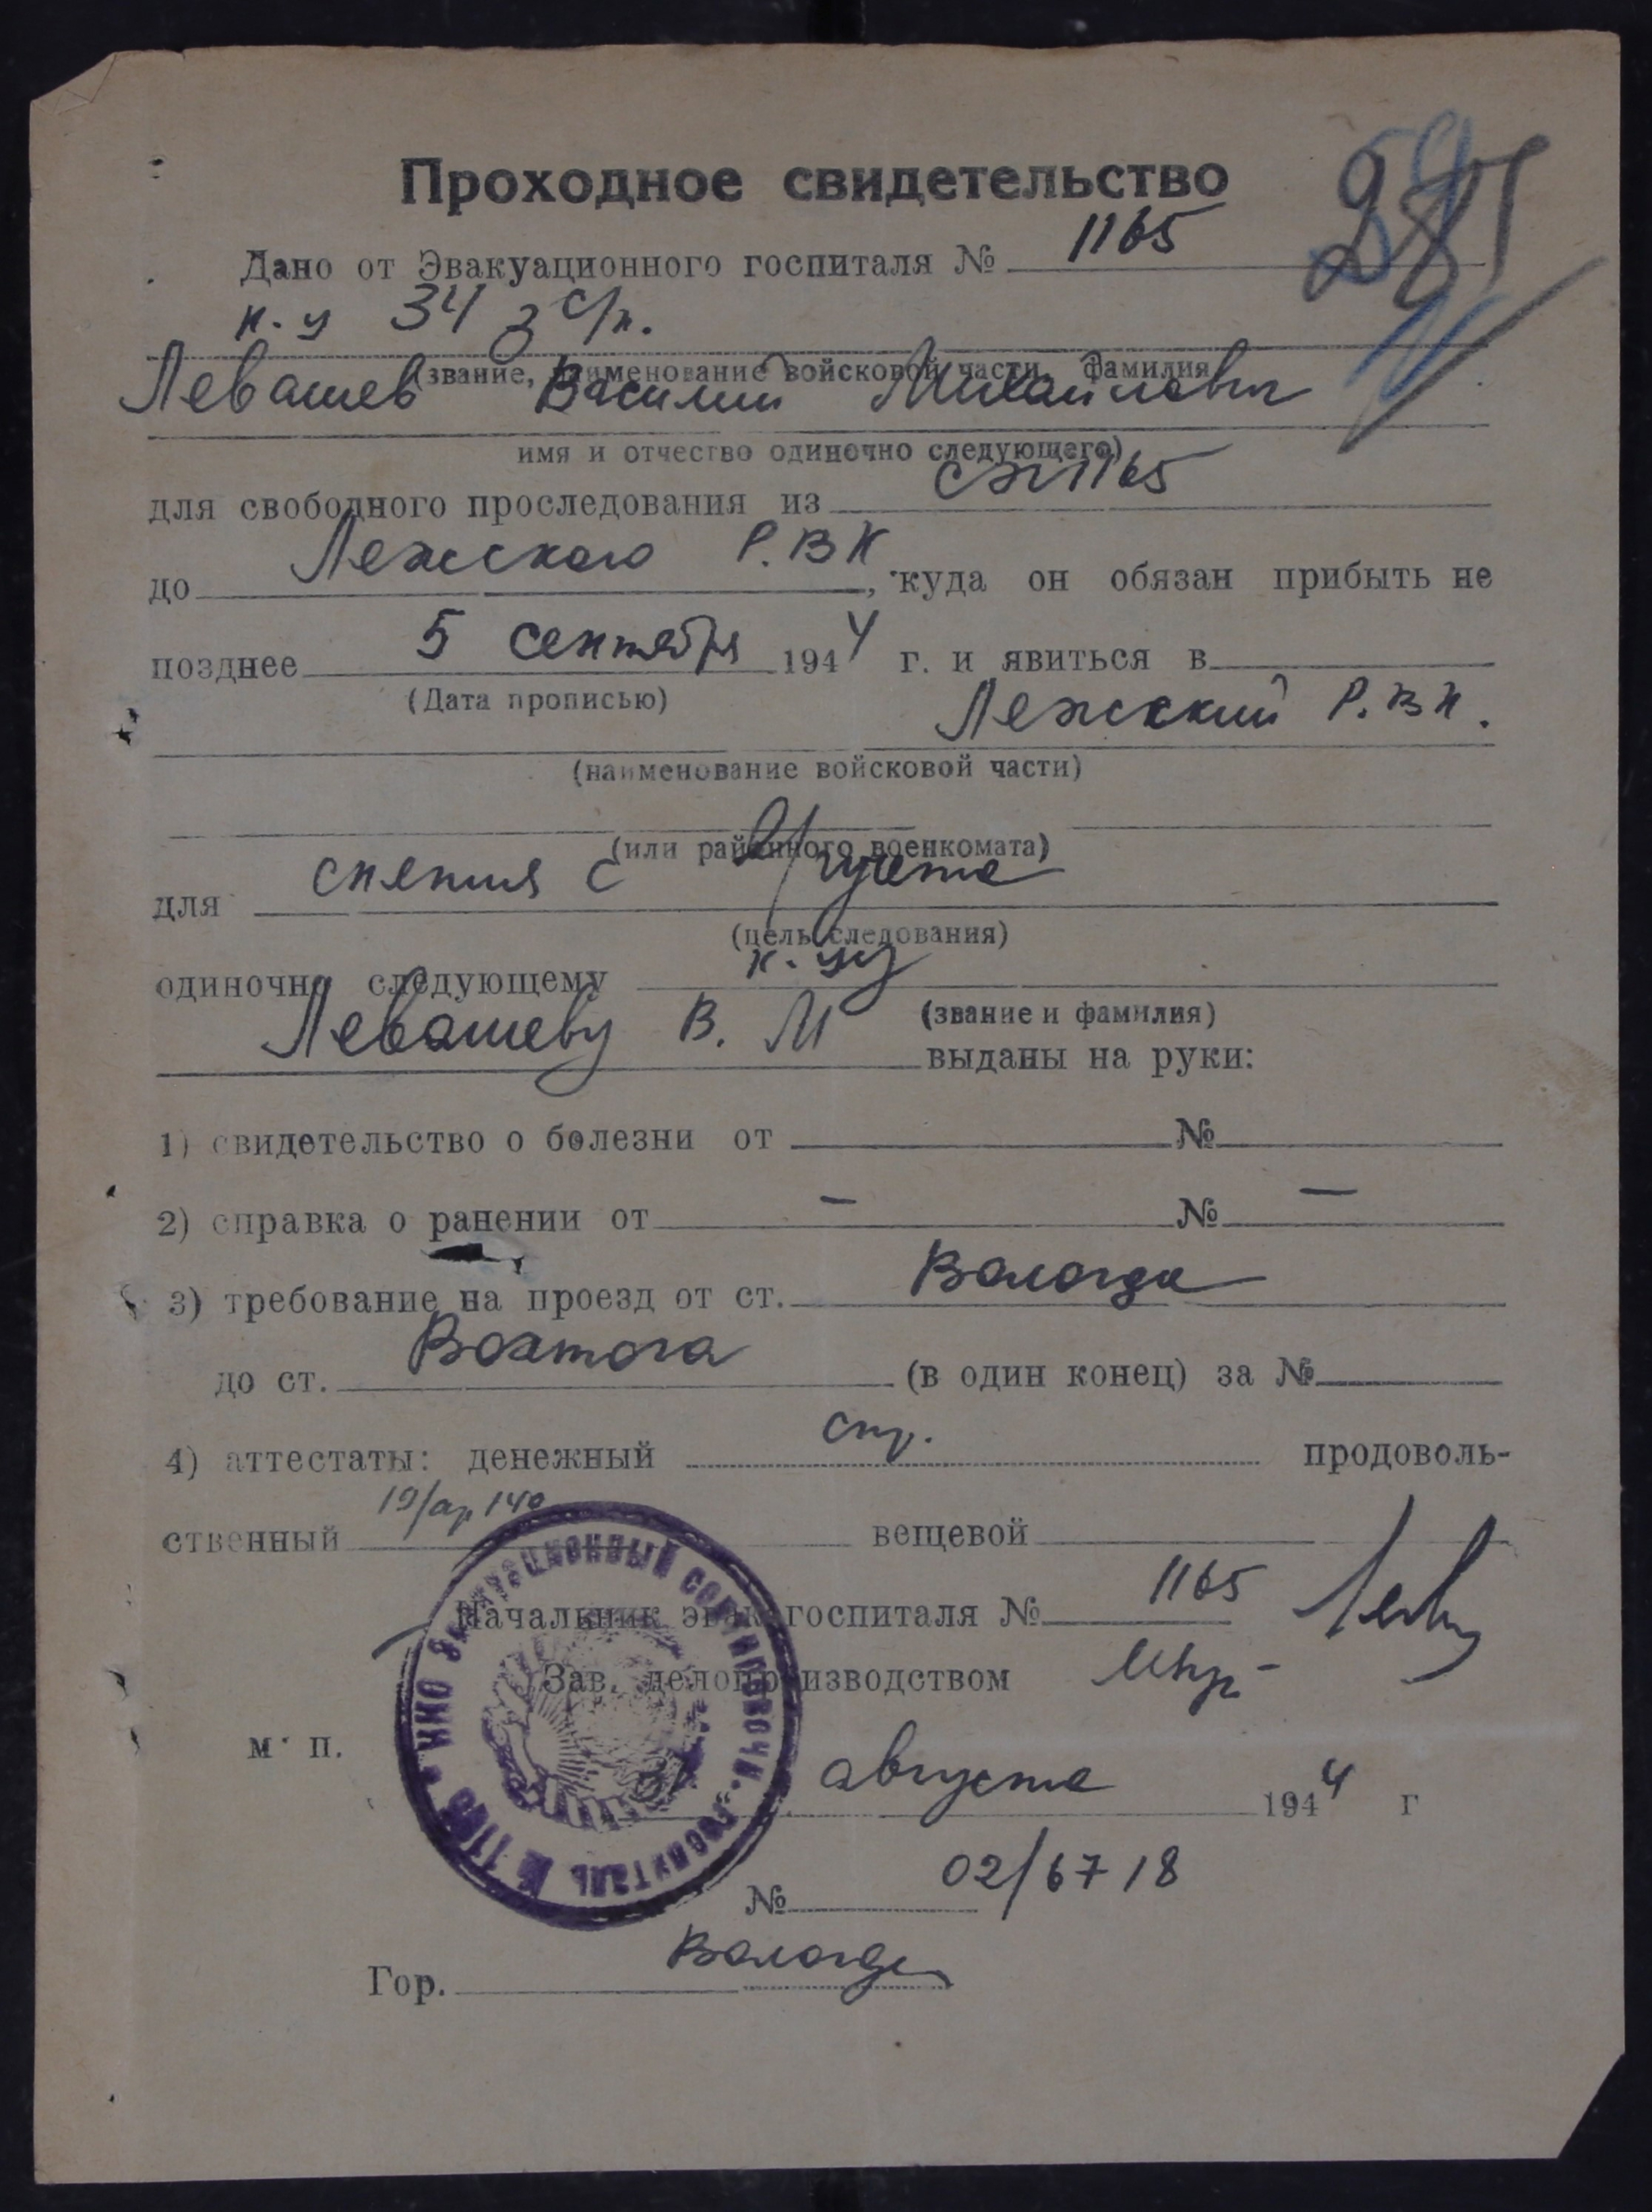 Проходное свидетельство
Дано от Эвакуационного госпиталя № 1165
к-у 34 з с/п.
(звание, наименование войсковой части, фамилия
Левашев Василий Михайлович
имя и отчество одиночно следующего)
для свободного проследования из СЭГ 1165
до Лежского Р.В К, куда он обязан прибыть не
позднее 5 сентября 1944 г. и явиться в
(Дата прописью)
Лежский Р.В К.
(наименование войсковой части)
(или районного военкомата)
для снятия с учета
(цель следования)
одиночно следующему к-цу
Левашеву В. М (звание и фамилия)
выданы на руки:
1) свидетельство о болезни от №
2) справка о ранении от — № —
3) требование на проезд от ст. Вологда
до ст. Вохтога (в один конец) за №
4) аттестаты: денежный спр. продоволь-
ственный вещевой
Начальник эвакогоспиталя № 1165
Зав. делопроизводством
м. п.
августа 1944 г
№ 02/6718
Гор. Вологда